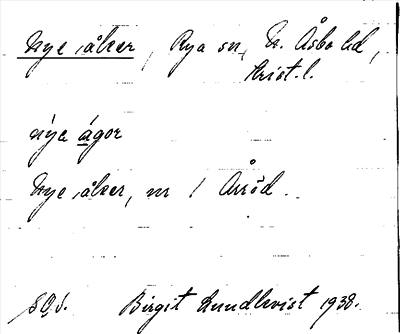 Nye åker, Rya sn, N. Åsbo hd,
Krist. l.
nýe ágor
Nye åker, nr 1 Årröd.
Birgit Lundkvist 1938.